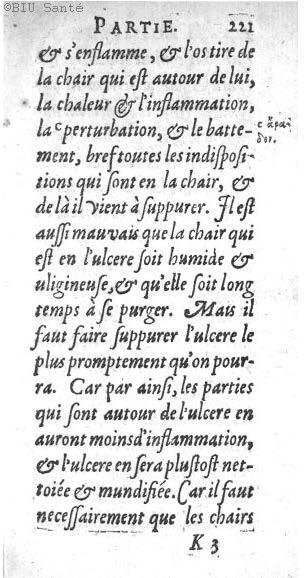 ©BIU Santé
PARTIE. 221
& s'enflamme, & l'os tire de
la chair qui eſt autour de lui,
la chaleur & l'inflammation,
la ᶜ perturbation, & le batte-
ment, bref toutes les indiſpoſi-
tions qui ſont en la chair, &
de là il vient à ſuppurer. Il eſt
auſſi mauvais que la chair qui
eſt en l'ulcere ſoit humide &
uligineuſe, & qu'elle ſoit long
temps à ſe purger. Mais il
faut faire ſuppurer l'ulcere le
plus promptement qu'on pour-
ra. Car par ainſi, les parties
qui ſont autour de l'ulcere en
auront moins d'inflammation,
& l'ulcere en ſera pluſtoſt net-
toiée & mundifiée. Car il faut
neceſſairement que les chairs
K 3